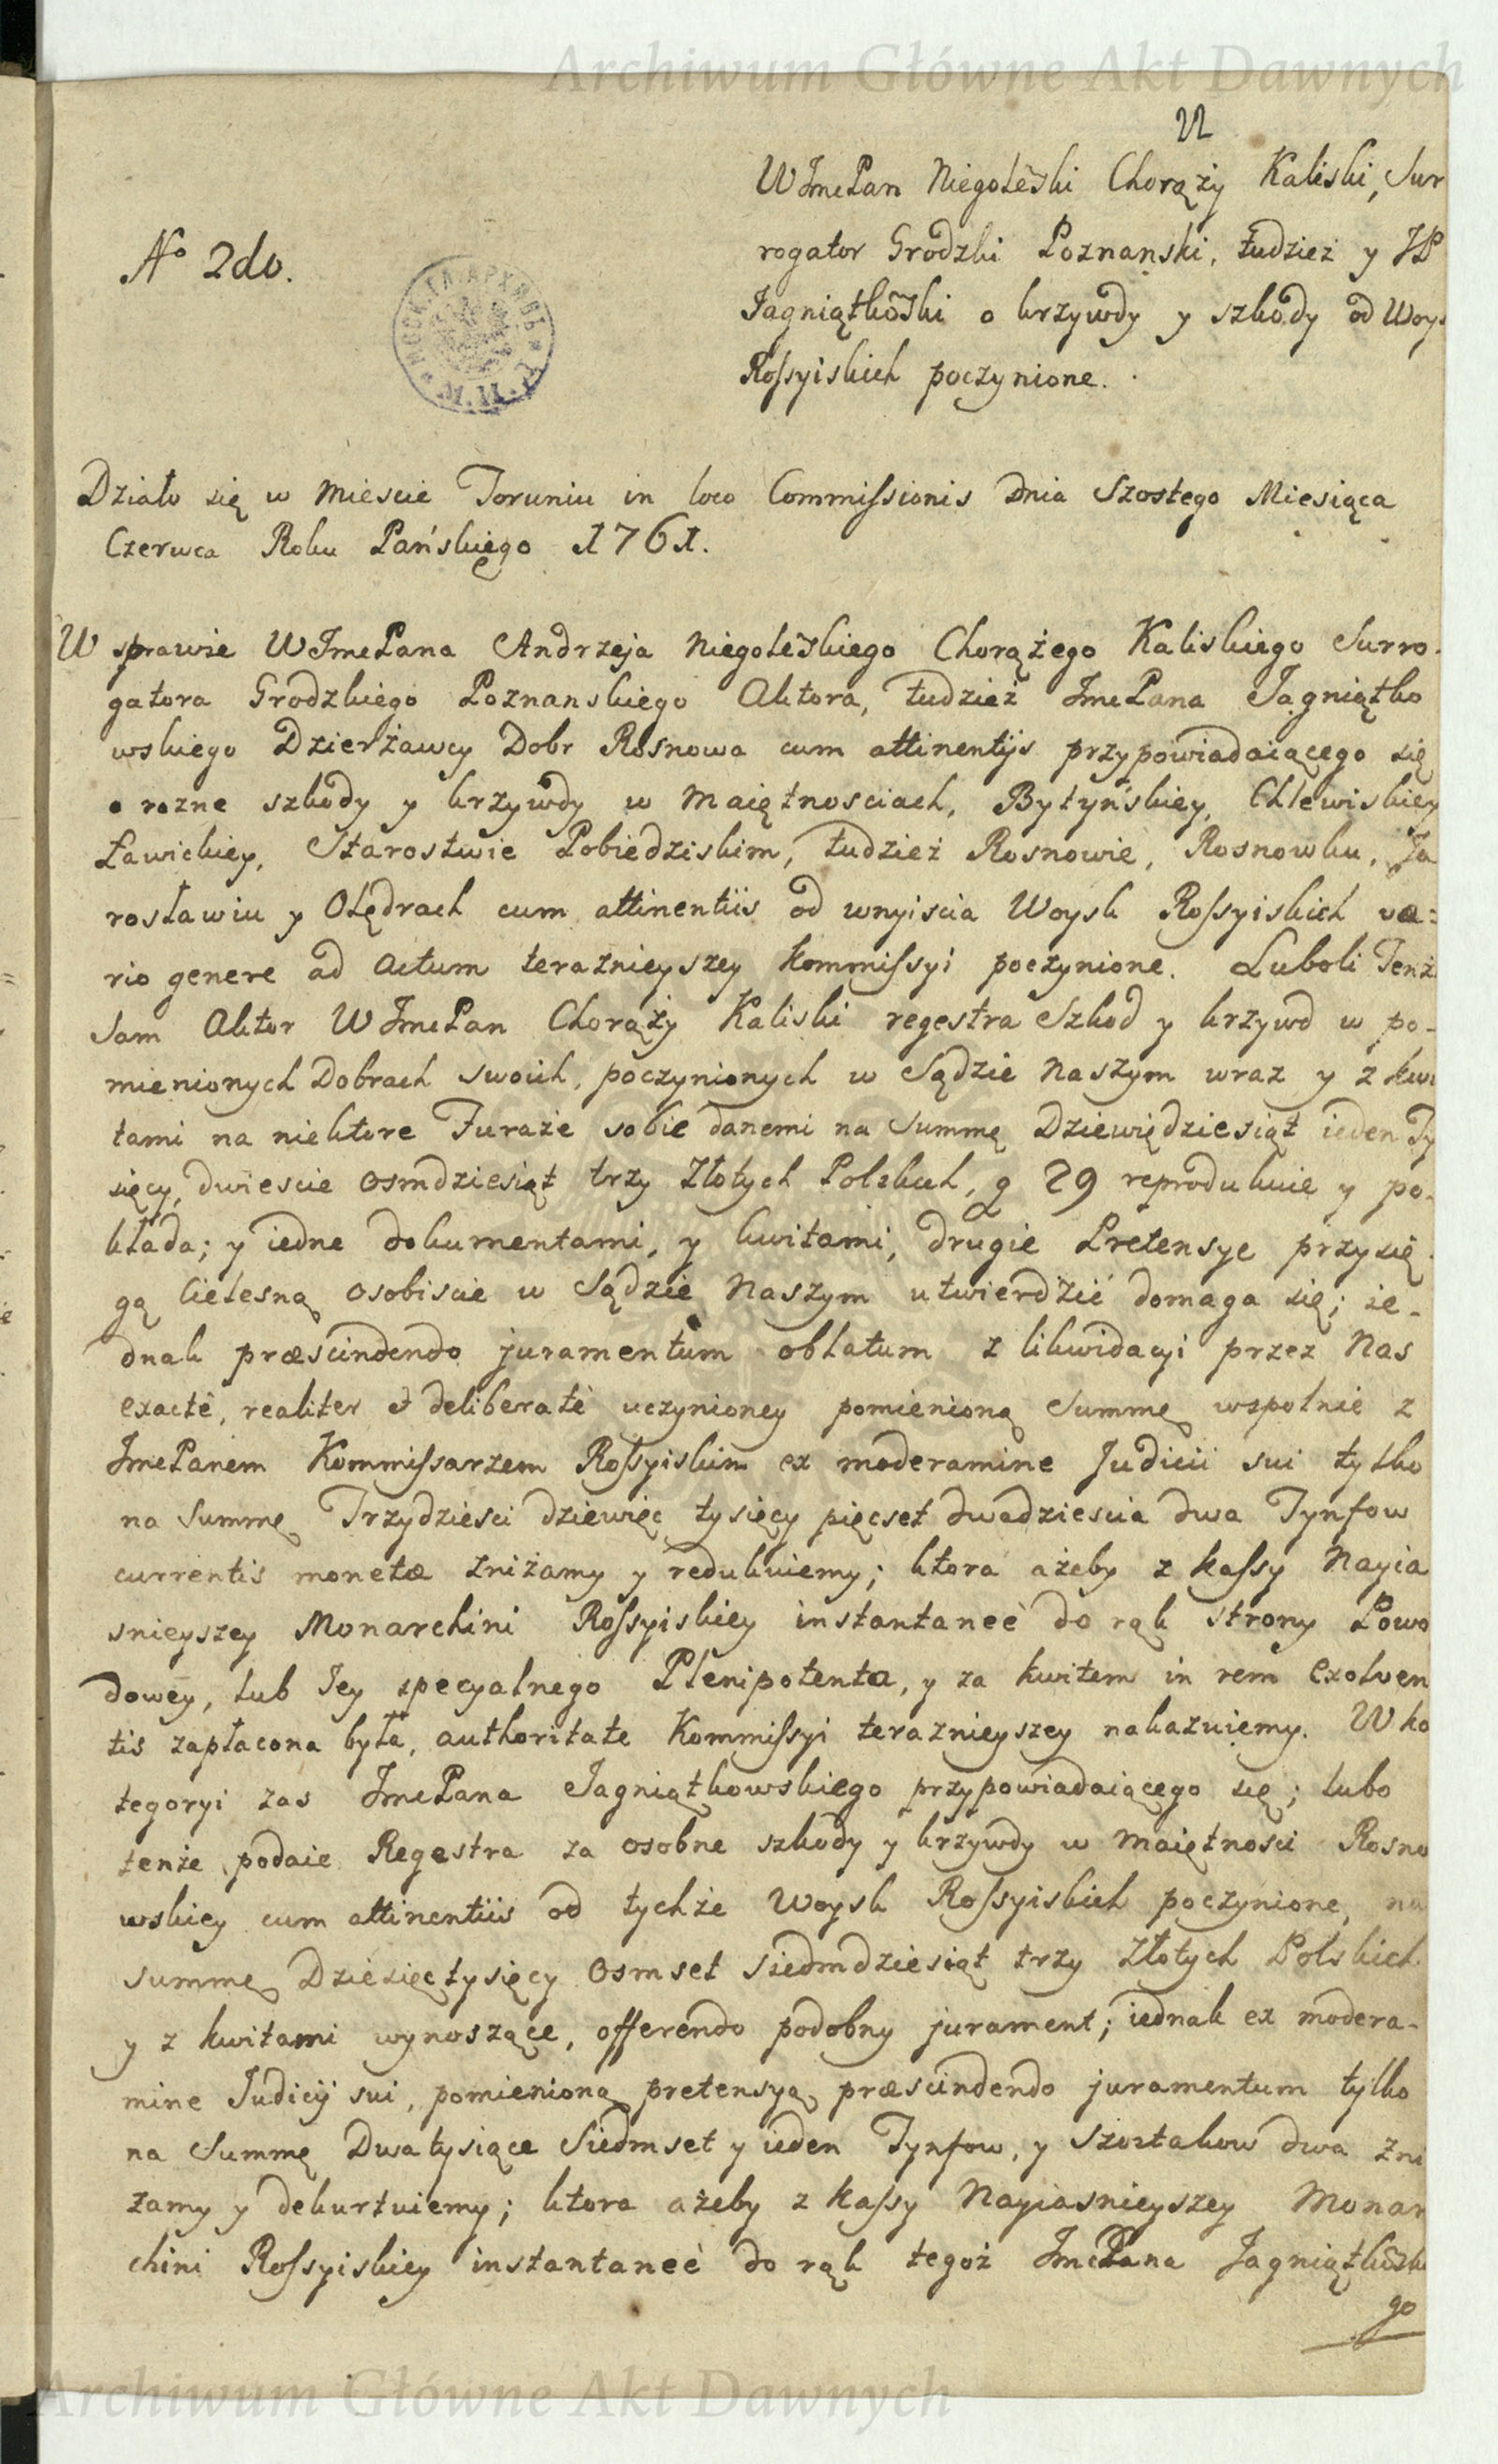 Archiwum Główne Akt Dawnych
22
WJmcPan Niegolewski Chorąży Kaliski, Sur
rogator Grodzki Poznanski, tudzież y JP
No 2do.
Jagniątkowski o krzywdy y szkody od Woys
Rossyiskich poczynione.
Działo się w Miescie Toruniu in loco Commissionis Dnia Szostego Miesiąca
Czerwca Roku Pańskiego 1761.
W sprawie WJmcPana Andrzeja Niegolewskiego Chorążego Kaliskiego Surro-
gatora Grodzkiego Poznanskiego Aktora, tudzież JmcPana Jagniątko
wskiego Dzierżawcy Dobr Rosnowa cum attinentijs przypowiadaiącego się
o rozne szkody y krzywdy w Maiętnosciach, Bytyńskiey, Chlewiskiey
Ławickiey, Starostwie Pobiedziskim, tudzież Rosnowie, Rosnowku, Ja
rosławiu y Olędrach cum attinentiis od wnyiscia Woysk Rossyiskich va=
rio genere ad Actum teraznieyszey Kommissyi poczynione. Luboli Tenż
Sam Aktor WJmcPan Chorąży Kaliski regestra Szkod y krzywd w po-
mienionych Dobrach swoich, poczynionych w Sądzie Naszym wraz y z kwi
tami na niektore Furaże sobie danemi na Summę Dziewiędziesiąt ieden Ty
sięcy, dwiescie osmdziesiąt trzy Złotych Polskich, g 29 reprodukuie y po-
kłada; y iedne dokumentami, y kwitami, drugie Pretensye przysię
gą cielesną osobiscie w Sądzie Naszym utwierdzić domaga się; ie-
dnak præscindendo juramentum oblatum z likwidacyi przez Nas
exactè, realiter & deliberatè uczynioney pomienioną Summę wspolnie z
JmcPanem Kommissarzem Rossyiskim ex moderamine Judicii sui tylko
na Summę Trzydziesci dziewięc tysięcy pięcset dwadziescia dwa Tynfow
currentis monetæ zniżamy y redukuiemy; ktora ażeby z kassy Nayia
snieyszey Monarchini Rossyiskiey instantaneè do rąk strony Powo
dowey, lub Jey specyalnego Plenipotenta, y za kwitem in rem Exolven
tis zapłacona była, authoritate Kommissyi teraznieyszey nakazuiemy. W ka
tegoryi zas JmcPana Jagniątkowskiego przypowiadaiącego się; lubo
tenże podaie Regestra za osobne szkody y krzywdy w Maiętnosci Rosno
wskiey cum attinentiis od tychże Woysk Rossyiskich poczynione, na
summę Dziesięc tysięcy osmset siedmdziesiąt trzy Złotych Polskich
y z kwitami wynoszące, offerendo podobny jurament; iednak ex modera-
mine Judicij sui, pomienioną pretensyą præscindendo juramentum tylko
na Summę Dwa tysiące Siedmset y ieden Tynfow, y Szostakow dwa zni
zamy y dekurtuiemy; ktora ażeby z kassy Nayiasnieyszey Monar
chini Rossyiskiey instantaneè do rąk tegoż JmcPana Jagniątkowskie
go
Archiwum Główne Akt Dawnych